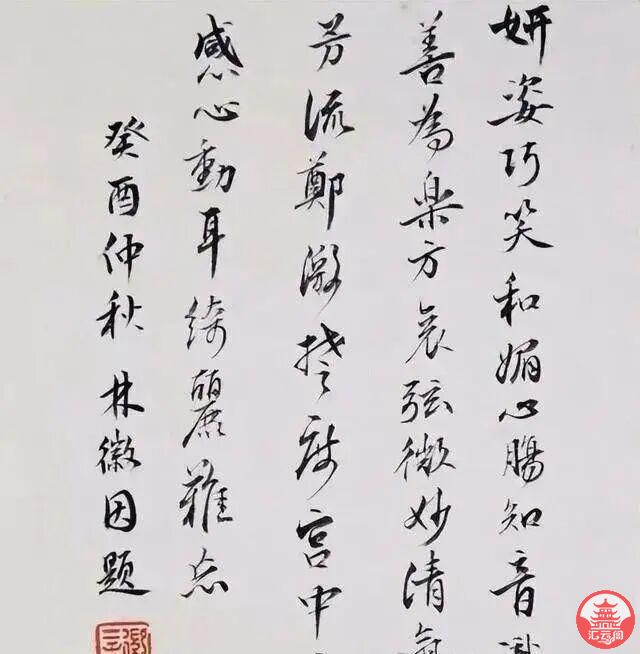 妍姿巧笑和媚心腸知音
善為楽方哀弦微妙清氣
芳流鄭激楚度宮中
感心動耳綺麗難忘
癸酉仲秋 林徽因題
汇云阁